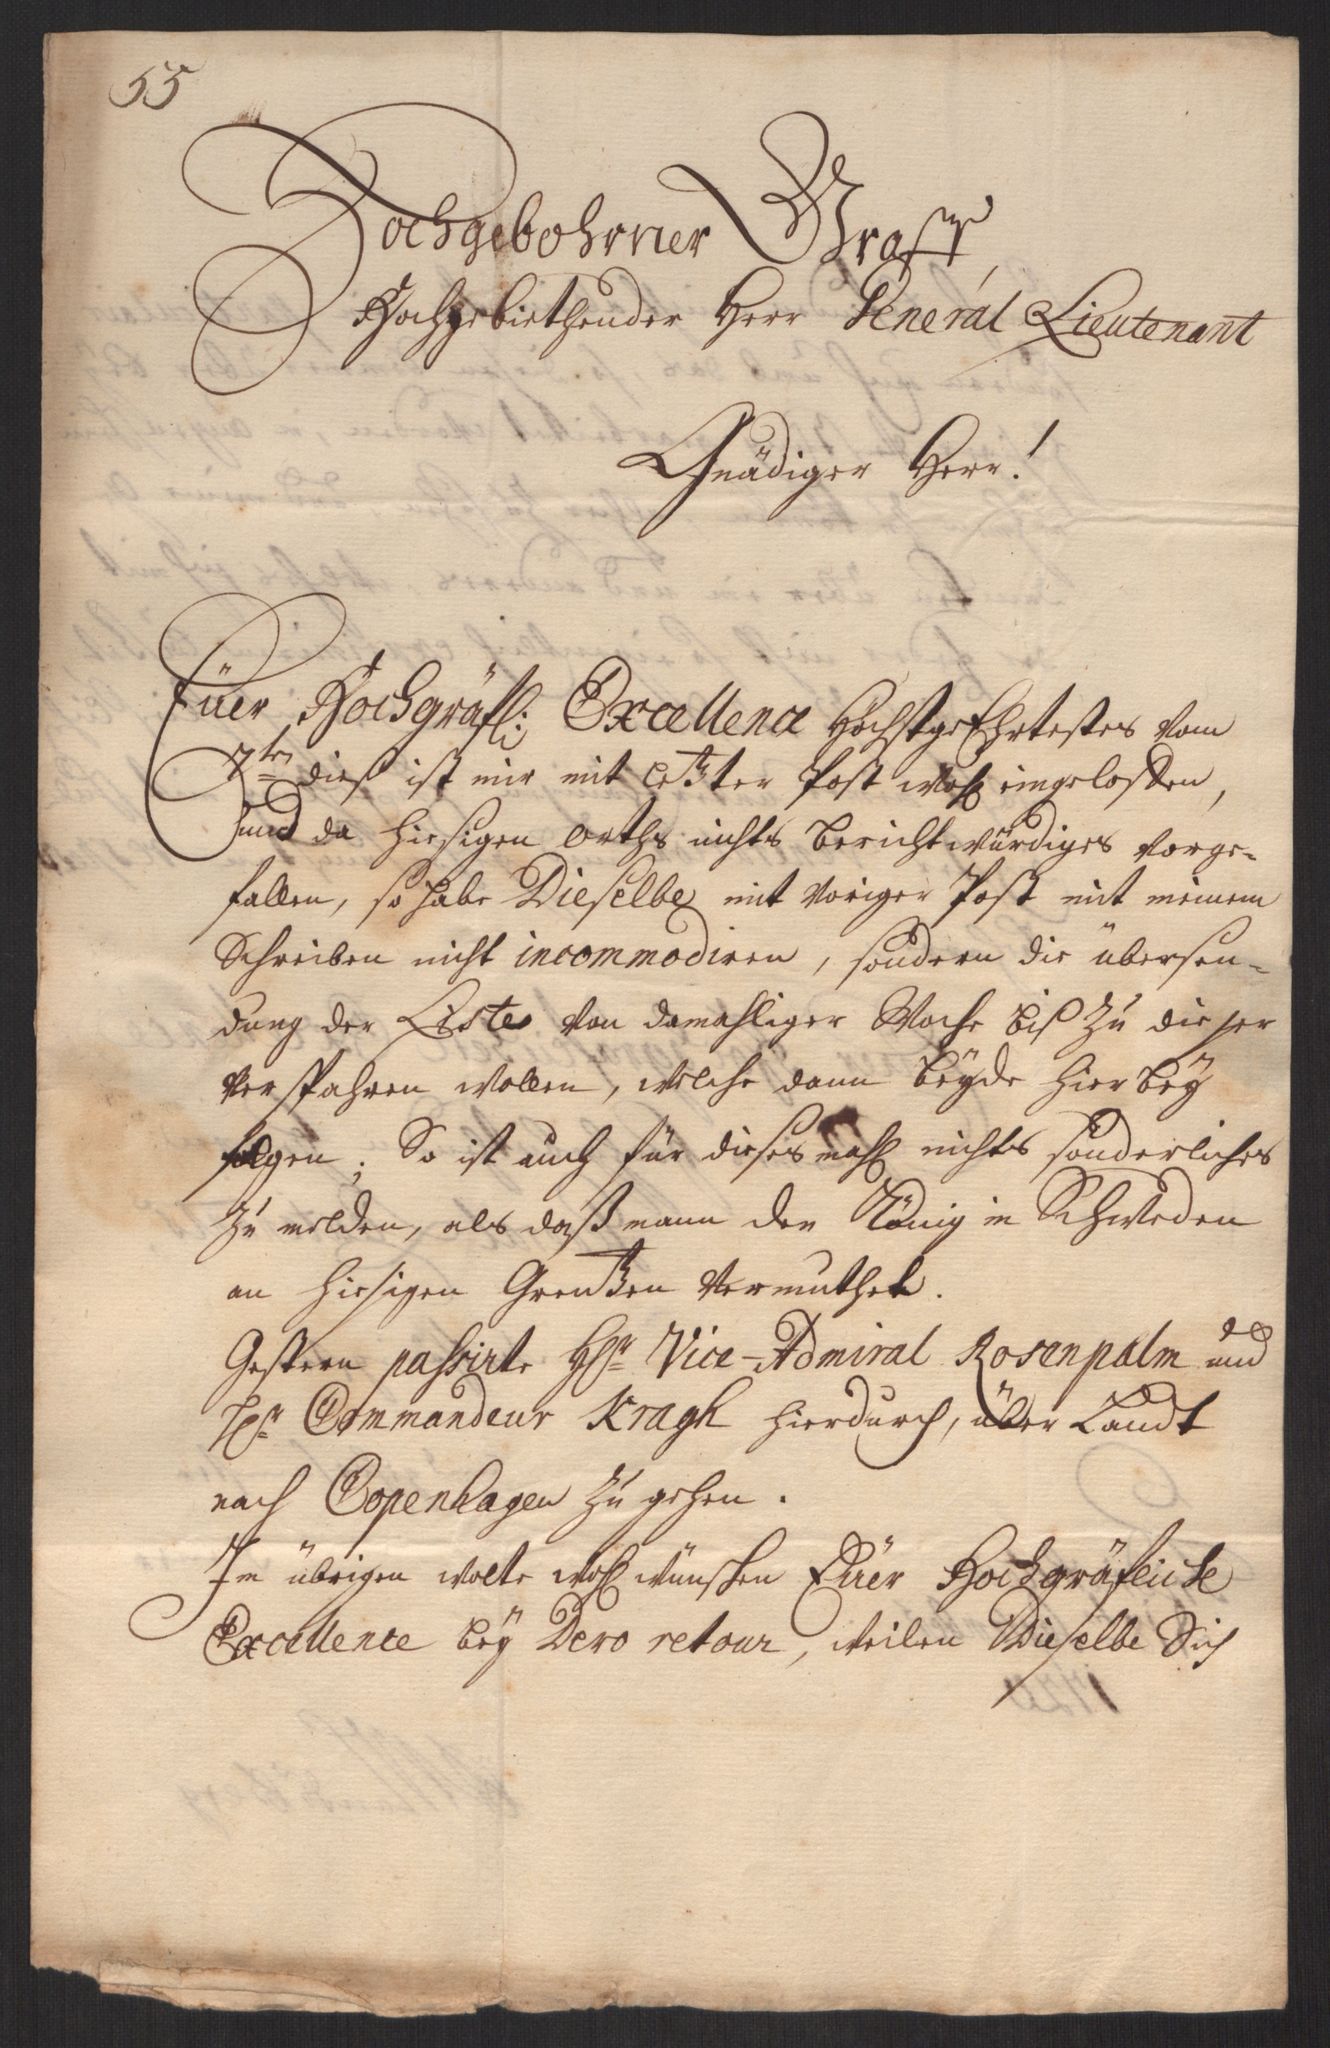 55
Hochgebohrner Graff,
Hochgebiethender Herr General Lieutenant
Gnädiger Herr!
Eüer Hochgräfl: Excellence Höchstgeehrtestes vom
7ten dieß ist mir mit letzter Post wohl eingeloffen,
und da hiesigen Orths nichts berichtwürdiges vorge-
fallen, so habe Dieselbe mit voriger Post mit meinem
Schreiben nicht incommodiren, sondern die übersen-
dung der Liste von damahliger Woche biß zu dieser
verspahren wollen, welche dann beyde hierbey
folgen; So ist auch für dieses mahl nichts sonderliches
zu melden, als daß mann den König in Schweden
an hiesigen Grentzen vermuthet.
Gestern passirte Hr Vice-Admiral Rosenpalm und
Hr Commandeur Kragh hierdurch, über Landt
nach Copenhagen zu gehen.
Im übrigen wolte wohl wünschen Eüer Hochgräfliche
Excellence bey Dero retour, weilen Dieselbe Sich